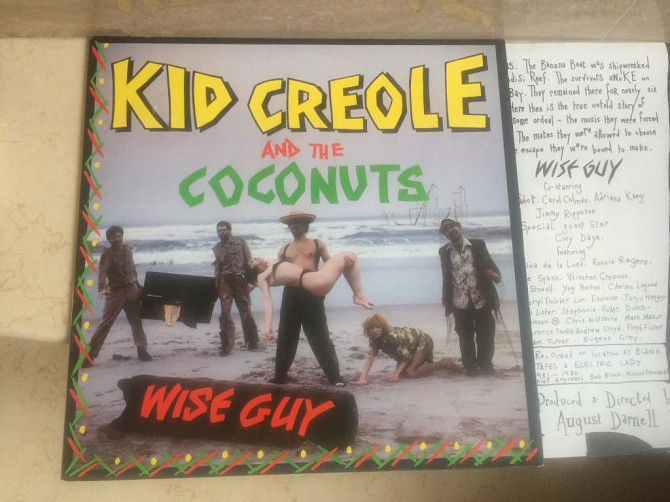 KID CREOLE
AND THE
COCONUTS
WISE GUY
The Banana Boat was shipwrecked
Reef. The survivors awoke on
Bay. They remained there for nearly six
Here then is the true untold story of
some ordeal - the music they were forced
The mates they were allowed to choose
escape they were bound to make.
WISE GUY
Co-starring
Carol Colman. Adriana Kaegi
Jimmy Rippetoe
Special guest Star
Cory Daye.
Featuring
de la Luna. Ronnie Rogers.
Spann. Winston Grennan.
Stovall. Yogi Horton. Charles Lagond
Lori Eastside. Taryn Hagey
Lister Stephanie Fuller. Dutch
Chris Wiltshire. Mark Mazur
Andrew Lloyd. Floyd Fisher
Turner. Eugene Grey.
Recorded on location at BLANK
TAPES & ELECTRIC LADY
1981 - 1982
engineers Bob Blank, Michael
Produced & Directed b
August Darnell